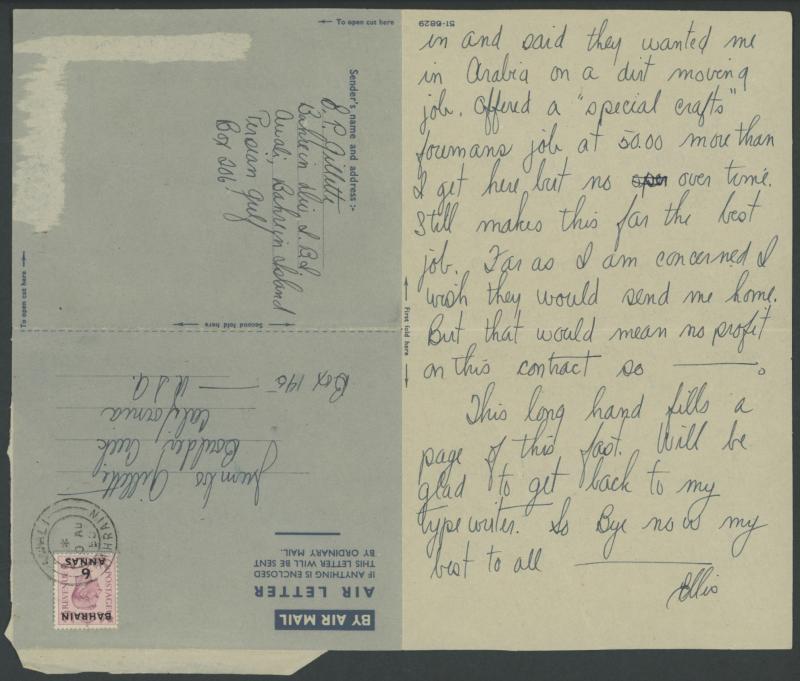 in and said they wanted me
in Arabia on a dirt moving
job. Offered a "special crafts"
foremans job at 50.00 more than
I get here but no over time.
Still makes this far the best
job. Far as I am concerned I
wish they would send me home.
But that would mean no profit
on this contract so ———.
This long hand fills a
page of this fast. Will be
glad to get back to my
typewriter. So Bye now my
best to all ———
Ellis
51-6829
First fold here
To open cut here
Sender's name and address :-
E.P. Gillette
Awali, Bahrein Island
Persian Gulf
Box 206
Second fold here
To open cut here
BY AIR MAIL
AIR LETTER
IF ANYTHING IS ENCLOSED
THIS LETTER WILL BE SENT
BY ORDINARY MAIL.
BAHRAIN
6
ANNAS
POSTAGE
REVENUE
AWALI
BAHRAIN
Gillette
Boulder Creek
California
Box 145 — U.S.A.